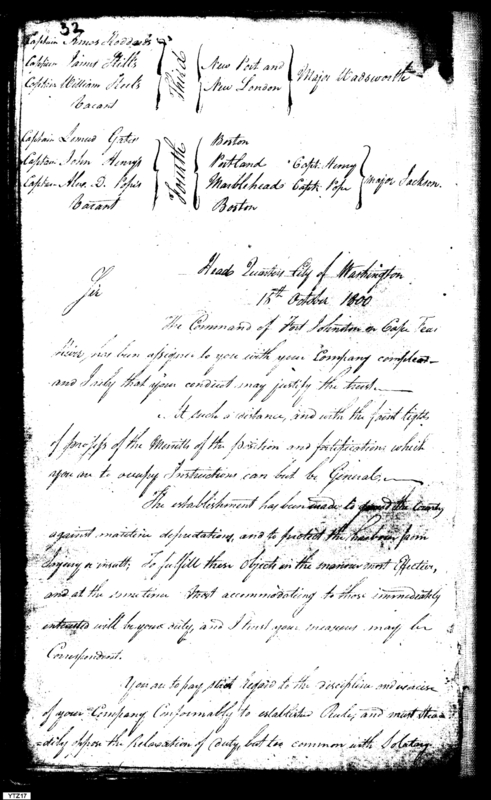 32
Captain Amos Stoddard
Captain James Stille
Captain William Steele
Vacant
Third
New Port and
New London
Major Wadsworth
Captain Lemuel Gates
Captain John Henry
Captain Alex. D. Pope
Vacant
Fourth
Boston
Portland Capt. Henry
Marblehead Capt. Pope
Boston
Major Jackson
Head Quarters City of Washington
15th October 1800
Sir
The Command of Fort Johnston on Cape Fear
River, has been assigned to you with your Company compleat
and I rely that your conduct may justify the trust.
At such a distance, and with the faint lights
of the of the position and fortifications which
you are to occupy Instructions can but be General.
The establishment has been made to guard the County
against maritime depredations, and to protect the harbour from
injury or insult; To fulfill these objects in the manner most Effective,
and at the same time most accommodating to those immediately
interested will be your duty, and I trust your measures may be
Correspondent.
You are to pay strict regard to the discipline and exercise
of your Company Conformably to established Rules, and must stea-
dily oppose the Relaxation of duty, but too common with Solitary
YTZ17